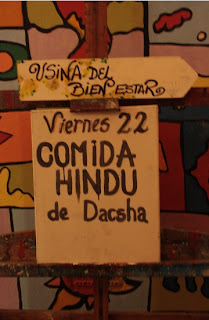 USINA DEL
BIEN ESTAR
Viernes 22
COMIDA
HINDU
de Dacsha